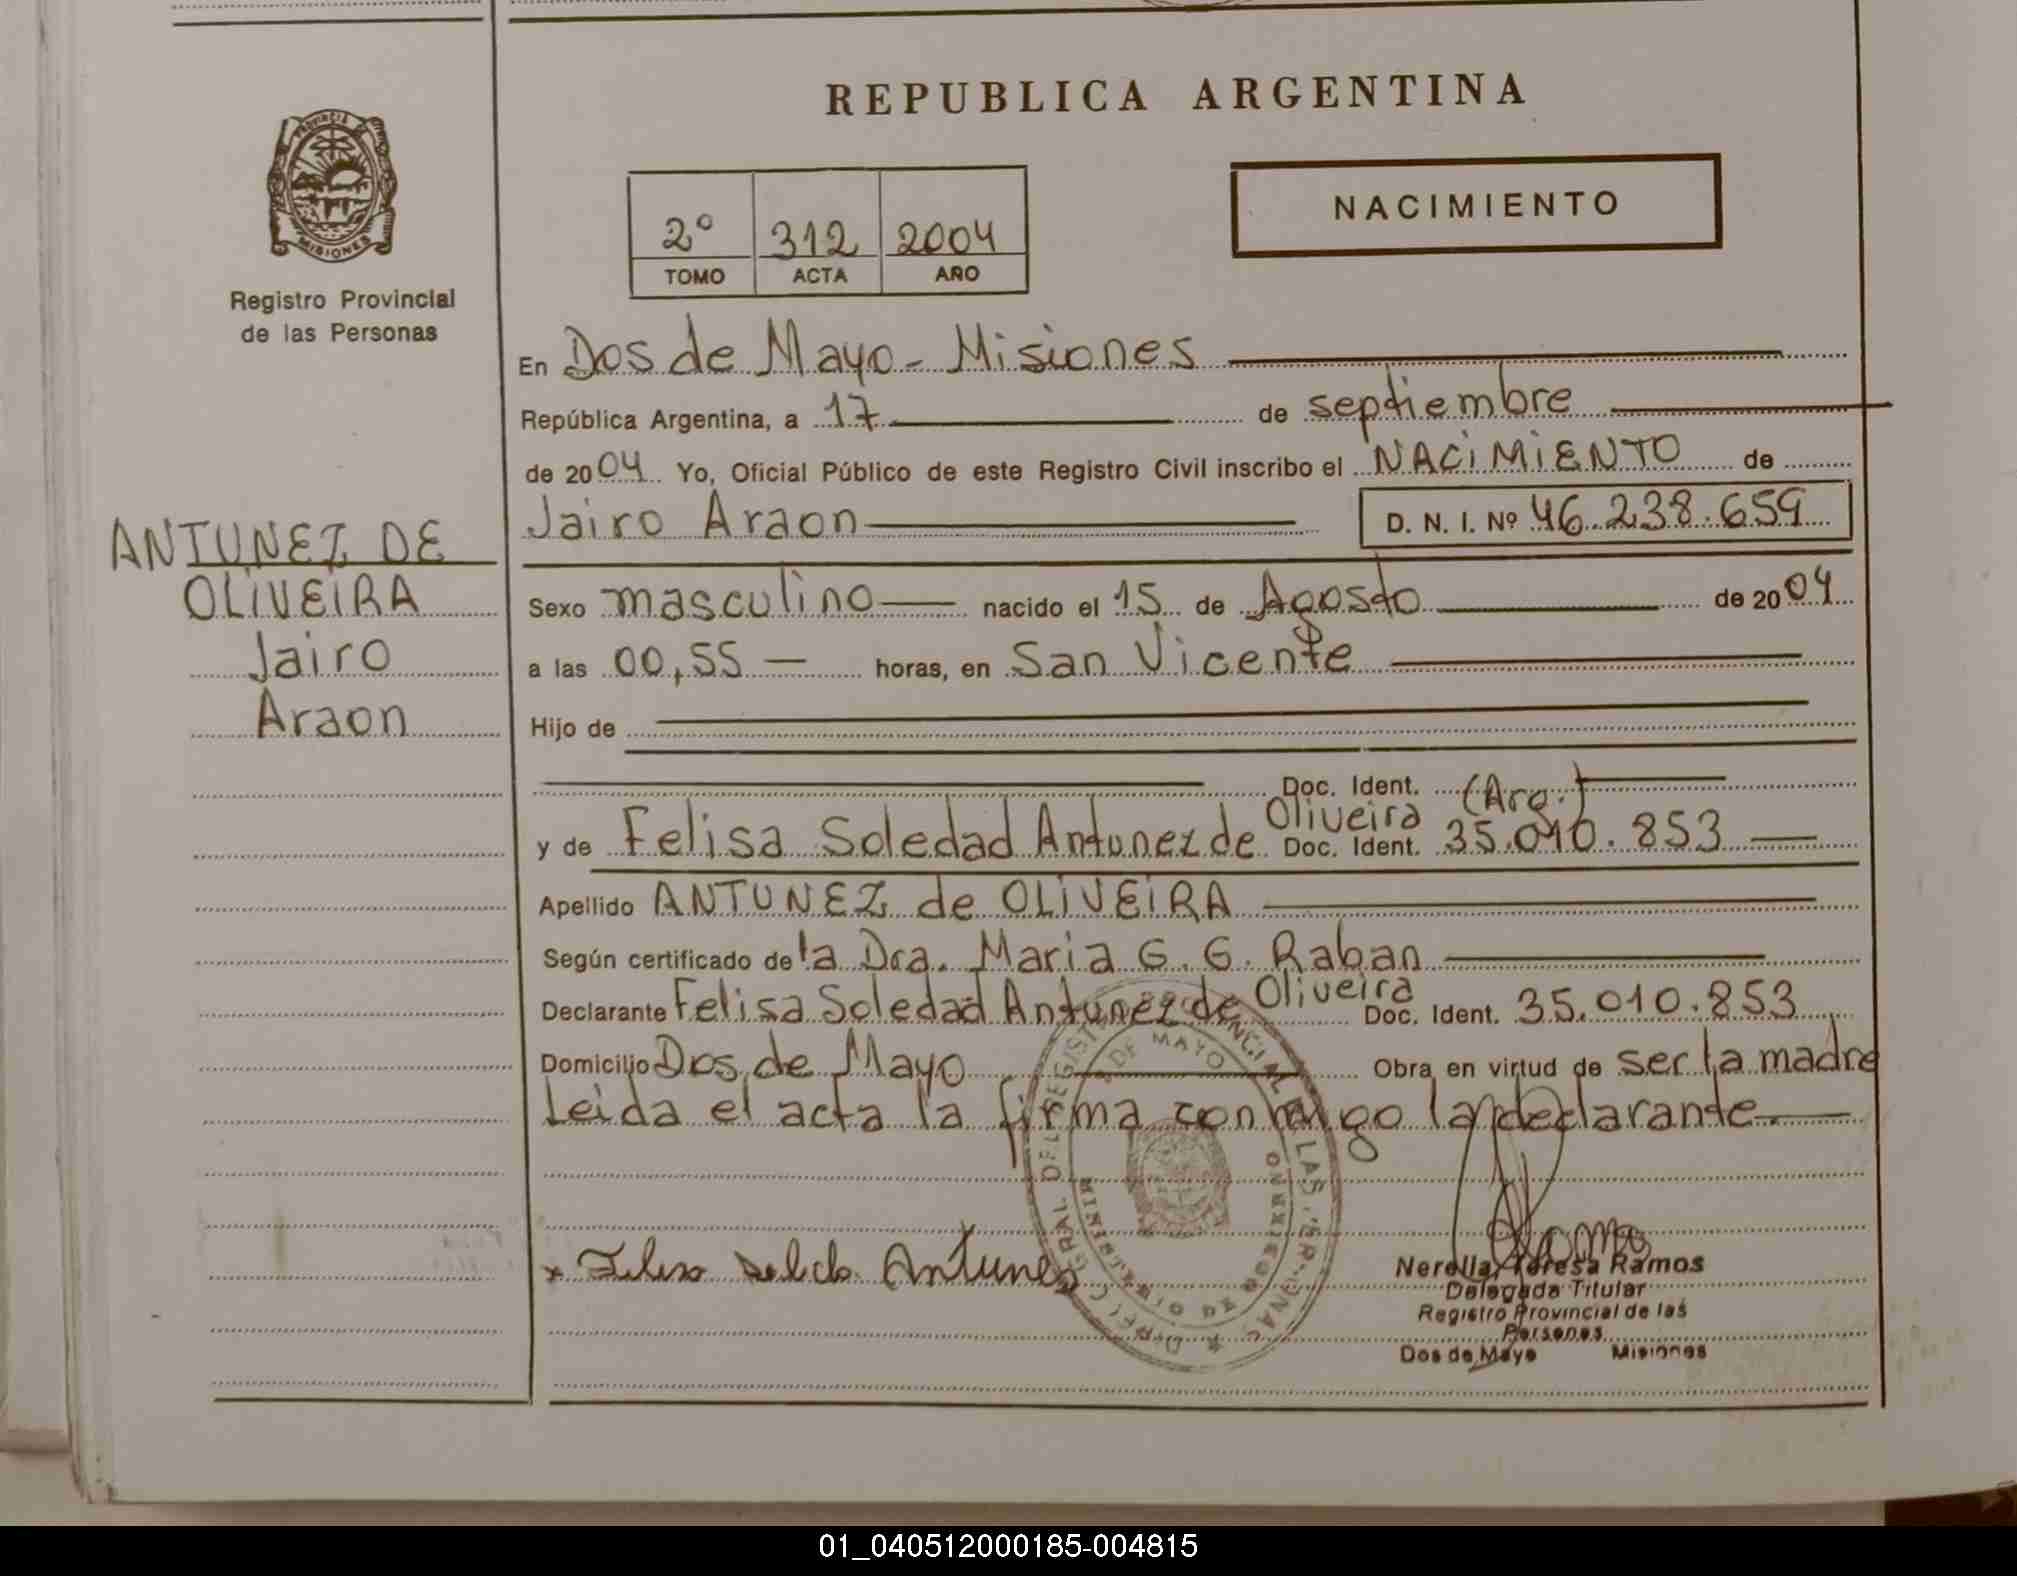 REPUBLICA ARGENTINA
PROVINCIA DE
MISIONES
Registro Provincial
de las Personas
2º 312 2004
TOMO ACTA AÑO
NACIMIENTO
En Dos de Mayo - Misiones
República Argentina, a 17 de septiembre
de 2004 Yo, Oficial Público de este Registro Civil inscribo el NACIMIENTO de
Jairo Araon D. N. I. Nº 46.238.659
ANTUNEZ DE
OLIVEIRA
Jairo
Araon
Sexo masculino nacido el 15 de Agosto de 2004
a las 00,55 horas, en San Vicente
Hijo de
Doc. Ident. (Arg.)
y de Felisa Soledad Antunez de Oliveira Doc. Ident. 35.010.853
Apellido ANTUNEZ de OLIVEIRA
Según certificado de la Dra. Maria G. G. Raban
Declarante Felisa Soledad Antunez de Oliveira Doc. Ident. 35.010.853
Domicilio Dos de Mayo Obra en virtud de ser la madre
Leida el acta la firma conmigo la declarante.
Antunes
Nerella Teresa Ramos
Delegada Titular
Registro Provincial de las
Personas
Dos de Mayo Misiones
01_040512000185-004815